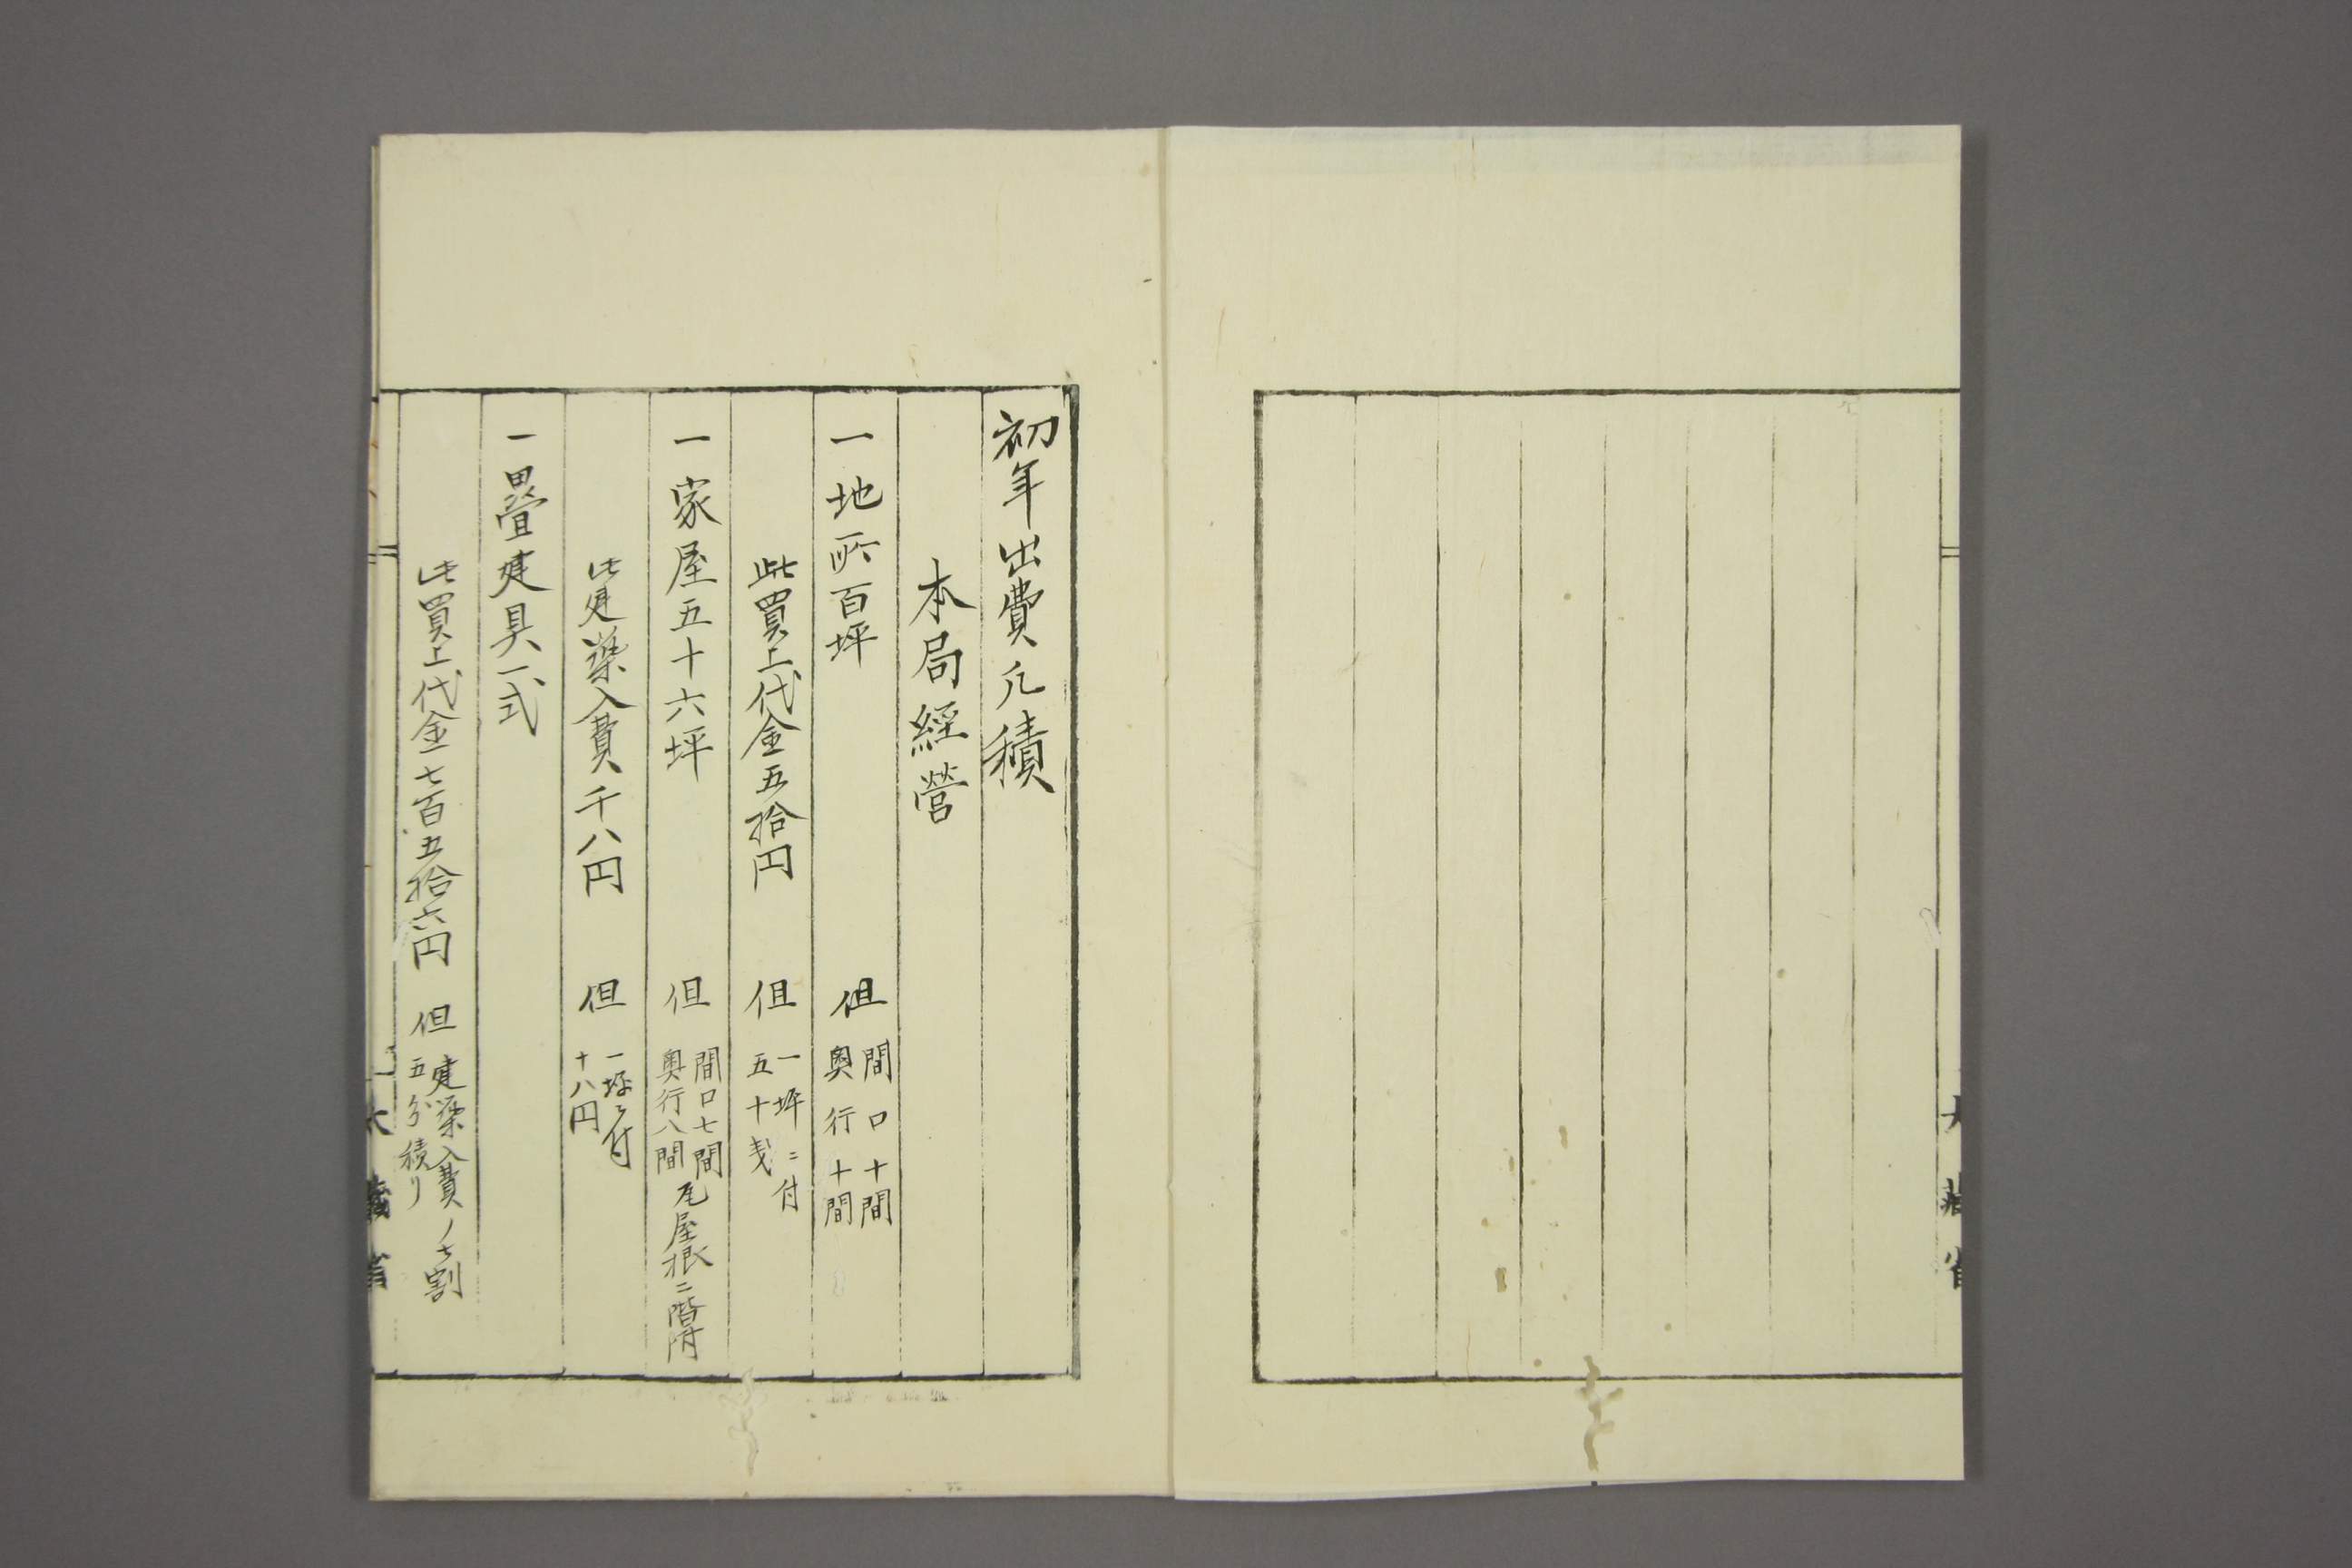 初年出費凢積
本局經營
一地所百坪 但 間口十間 奥行十間
此買上代金五拾円 但 一坪ニ付 五十戔
一家屋五十六坪 但 間口七間 奥行八間 瓦屋根二階附
此建築入費千八円 但 一坪ニ付 十八円
一疊建具一式
此買上代金七百五拾六円 但 建築入費ノ七割 五分積リ
大藏省
大藏省